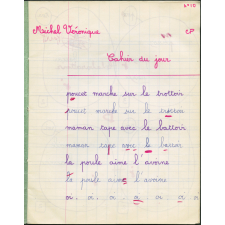 N°10
Michel Véronique
CP
Cahier du jour
poucet marche sur le trottoir
poucet marche sur le trottoir
maman tape avec le battoir
maman tape avec le battoir
la poule aime l'avoine
la poule aime l'avoine